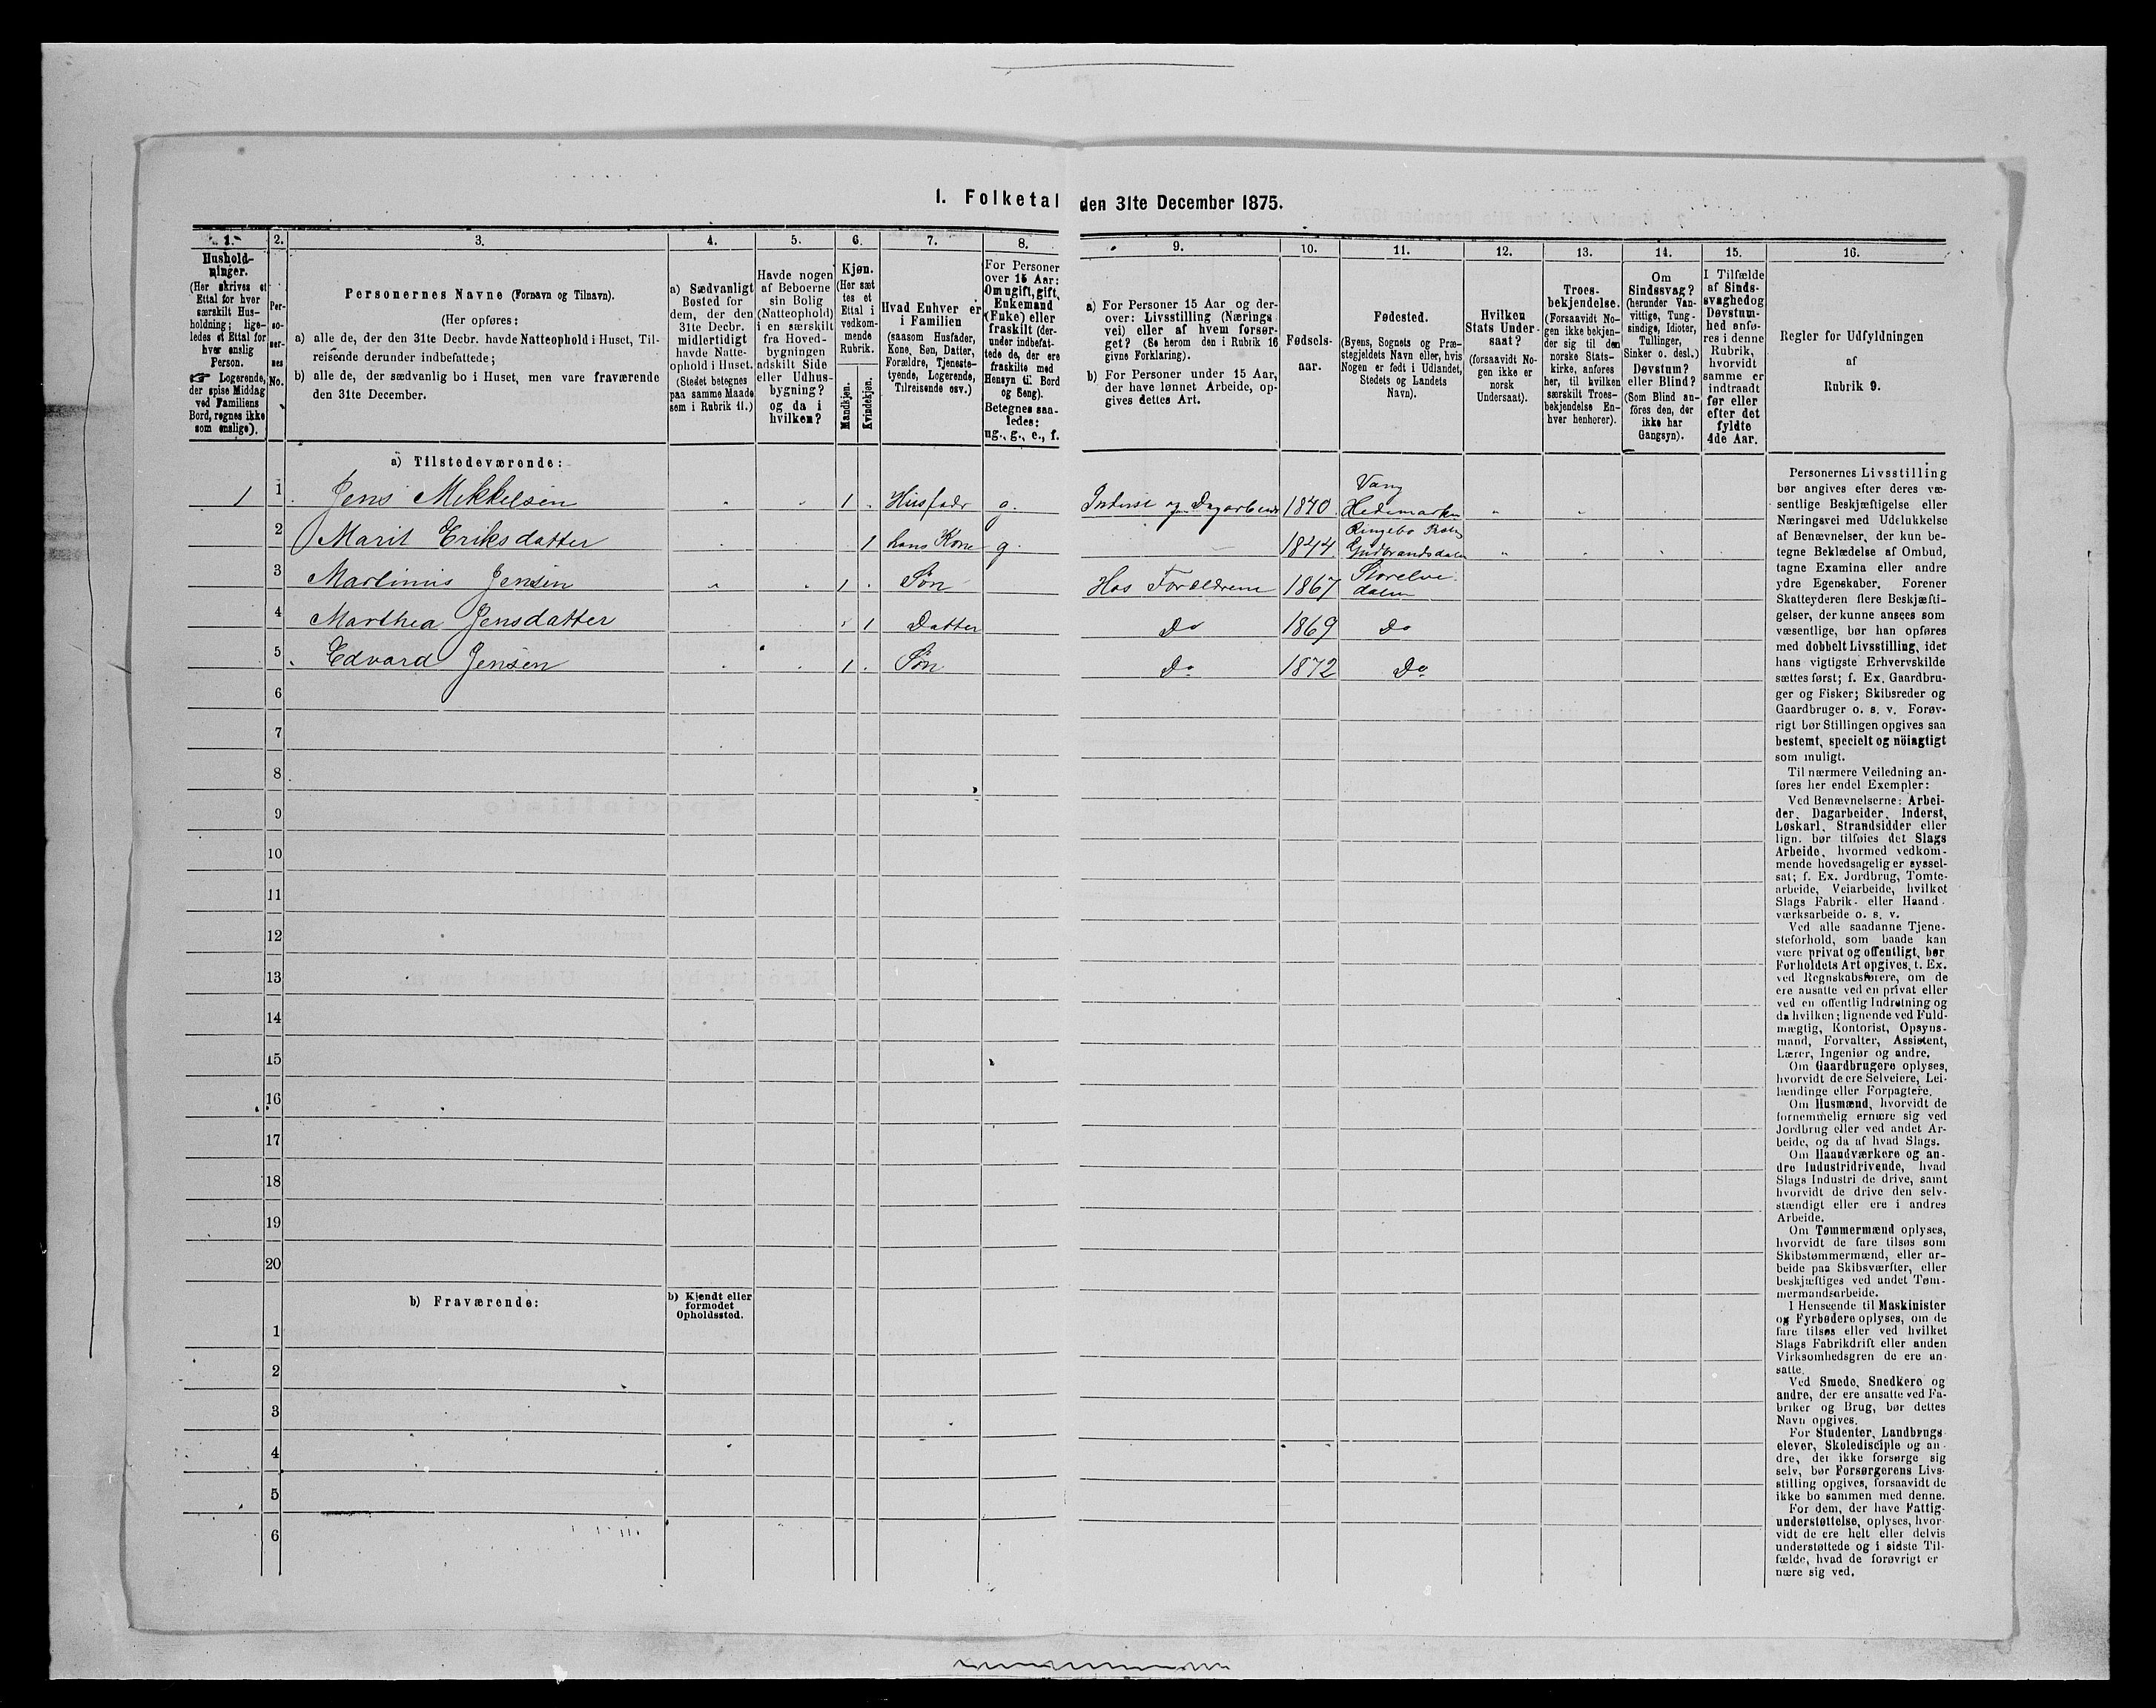 1. Folketal den 31te December 1875.
1.
2.
3.
4.
5.
6.
7.
8.
9.
10.
11.
12.
13.
14.
15.
16.
Hushold-
ninger.
(Her skrives et
Ettal for hver
særskilt Hus-
holdning; lige-
ledes et Ettal for
hver enslig
Person.
☞ Logerende,
der spise Middag
ved Familiens
Bord, regnes ikke
som enslige).
Per-
so-
ner-
nes
No.
Personernes Navne (Fornavn og Tilnavn).
(Her opføres:
a) alle de, der den 31te Decbr. havde Natteophold i Huset, Til-
reisende derunder indbefattede;
b) alle de, der sædvanlig bo i Huset, men vare fraværende
den 31te December.
a) Sædvanligt
Bosted for
dem, der den
31te Decbr.
midlertidigt
havde Natte-
ophold i Huset.
(Stedet betegnes
paa samme Maade
som i Rubrik 11.)
Havde nogen
af Beboerne
sin Bolig
(Natteophold)
i en særskilt
fra Hoved-
bygningen
adskilt Side
eller Udhus-
bygning?
og da i
hvilken?
Kjøn.
(Her sæt
tes et
Ettal i
vedkom-
mende
Rubrik.
Mandkjøn.
Kvindekjøn.
Hvad Enhver er
i Familien
(saasom Husfader,
Kone, Søn, Datter,
Forældre, Tjeneste-
tyende, Logerende,
Tilreisende osv.)
For Personer
over 15 Aar:
Om ugift, gift,
Enkemand
(Enke) eller
fraskilt (der-
under indbefat-
tede de, der ere
fraskilte med
Hensyn til Bord
og Seng).
Betegnes saa-
ledes:
ug., g., e., f.
a) For Personer 15 Aar og der-
over: Livsstilling (Nærings
vei) eller af hvem forsør-
get? (Se herom den i Rubrik 16
givne Forklaring).
b) For Personer under 15 Aar,
der have lønnet Arbeide, op-
gives dettes Art.
Fødsels-
aar.
Fødested.
(Byens, Sognets og Præ-
stegjeldets Navn eller, hvis
Nogen er født i Udlandet,
Stedets og Landets
Navn).
Hvilken
Stats Under-
saat?
(forsaavidt No-
gen ikke er
norsk
Undersaat).
Troes-
bekjendelse.
(Forsaavidt No-
gen ikke bekjen-
der sig til den
norske Stats-
kirke, anføres
her, til hvilken
særskilt Troes-
bekjendelse En-
hver henhører).
Om
Sindssvag?
(herunder Van-
vittige, Tung-
sindige, Idioter,
Tullinger,
Sinker o. desl.)
Døvstum?
eller Blind?
(Som Blind an-
føres den, der
ikke har
Gangsyn).
I Tilfælde
af Sinds-
svaghed og
Døvstum-
hed anfø-
res i denne
Rubrik,
hvorvidt
samme er
indtraadt
før eller
efter det
fyldte
4de Aar.
Regler for Udfyldningen
af
Rubrik 9.
a) Tilstedeværende:
1 1 Jens Mikkelsen 1 Husfadr g. Inderst og Dagarbeider 1840 Vang
Hedemarken
2 Marit Eriksdatter 1 hans Kone g. 1844 Ringebo
Gudbrandsdalen
3 Martinus Jensen 1 Søn Hos Forældrene 1867 Storelve
dalen
4 Marthea Jensdatter 1 Datter Do 1869 Do
5 Edvard Jensen 1 Søn Do 1872 Do
6
7
8
9
10
11
12
13
14
15
16
17
18
19
20
b) Fraværende:
b) Kjendt eller
formodet
Opholdssted.
1
2
3
4
5
6
Personernes Livsstilling
bør angives efter deres væ-
sentlige Beskjæftigelse eller
Næringsvei med Udelukkelse
af Benævnelser, der kun be-
tegne Beklædelse af Ombud,
tagne Examina eller andre
ydre Egenskaber. Forener
Skatteyderen flere Beskjæfti-
gelser, der kunne ansees som
væsentlige, bør han opføres
med dobbelt Livsstilling, idet
hans vigtigste Erhvervskilde
sættes først; f. Ex. Gaardbru-
ger og Fisker; Skibsreder og
Gaardbruger o. s. v. Forøv-
rigt bør Stillingen opgives saa
bestemt, specielt og nöiagtigt
som muligt.
Til nærmere Veiledning an-
føres her endel Exempler:
Ved Benævnelserne: Arbei-
der, Dagarbeider, Inderst,
Løskarl, Strandsidder eller
lign. bør tilføies det Slags
Arbeide, hvormed vedkom-
mende hovedsagelig er syssel-
sat; f. Ex. Jordbrug, Tomte-
arbeide, Veiarbeide, hvilket
Slags Fabrik- eller Haand-
værksarbeide o. s. v.
Ved alle saadanne Tjene-
steforhold, som baade kan
være privat og offentligt, bør
Forholdets Art opgives, t. Ex.
ved Regnskabsførere, om de
ere ansatte ved en privat eller
ved en offentlig Indretning og
da hvilken; lignende ved Fuld-
mægtig, Kontorist, Opsyns-
mand, Forvalter, Assistent,
Lærer, Ingeniør og andre.
Om Gaardbrugere oplyses,
hvorvidt de ere Selveiere, Lei-
lændinge eller Forpagtere.
Om Husmænd, hvorvidt de
fornemmelig ernære sig ved
Jordbrug eller ved andet Ar-
beide, og da af hvad Slags.
Om Haandværkere og an-
dre Industridrivende, hvad
Slags Industri de drive, samt
hvorvidt de drive den selv-
stændigt eller ere i andres
Arbeide.
Om Tømmermænd oplyses,
hvorvidt de fare tilsøs som
Skibstømmermænd, eller ar-
beide paa Skibsværfter, eller
beskjæftiges ved andet Tøm-
mermandsarbeide.
I Henseende til Maskinister
og Fyrbødere oplyses, om de
fare tilsøs eller ved hvilket
Slags Fabrikdrift eller anden
Virksomhedsgren de ere an-
satte.
Ved Smede, Snedkere og
andre, der ere ansatte ved Fa-
briker og Brug, bør dettes
Navn opgives.
For Studenter, Landbrugs-
elever, Skoledisciple og an-
dre, der ikke forsørge sig
selv, bør Forsørgerens Livs-
stilling opgives, forsaavidt de
ikke bo sammen med denne.
For dem, der have Fattig-
understøttelse, oplyses, hvor-
vidt de ere helt eller delvis
understøttede og i sidste Til-
fælde, hvad de forøvrigt er
nære sig ved.